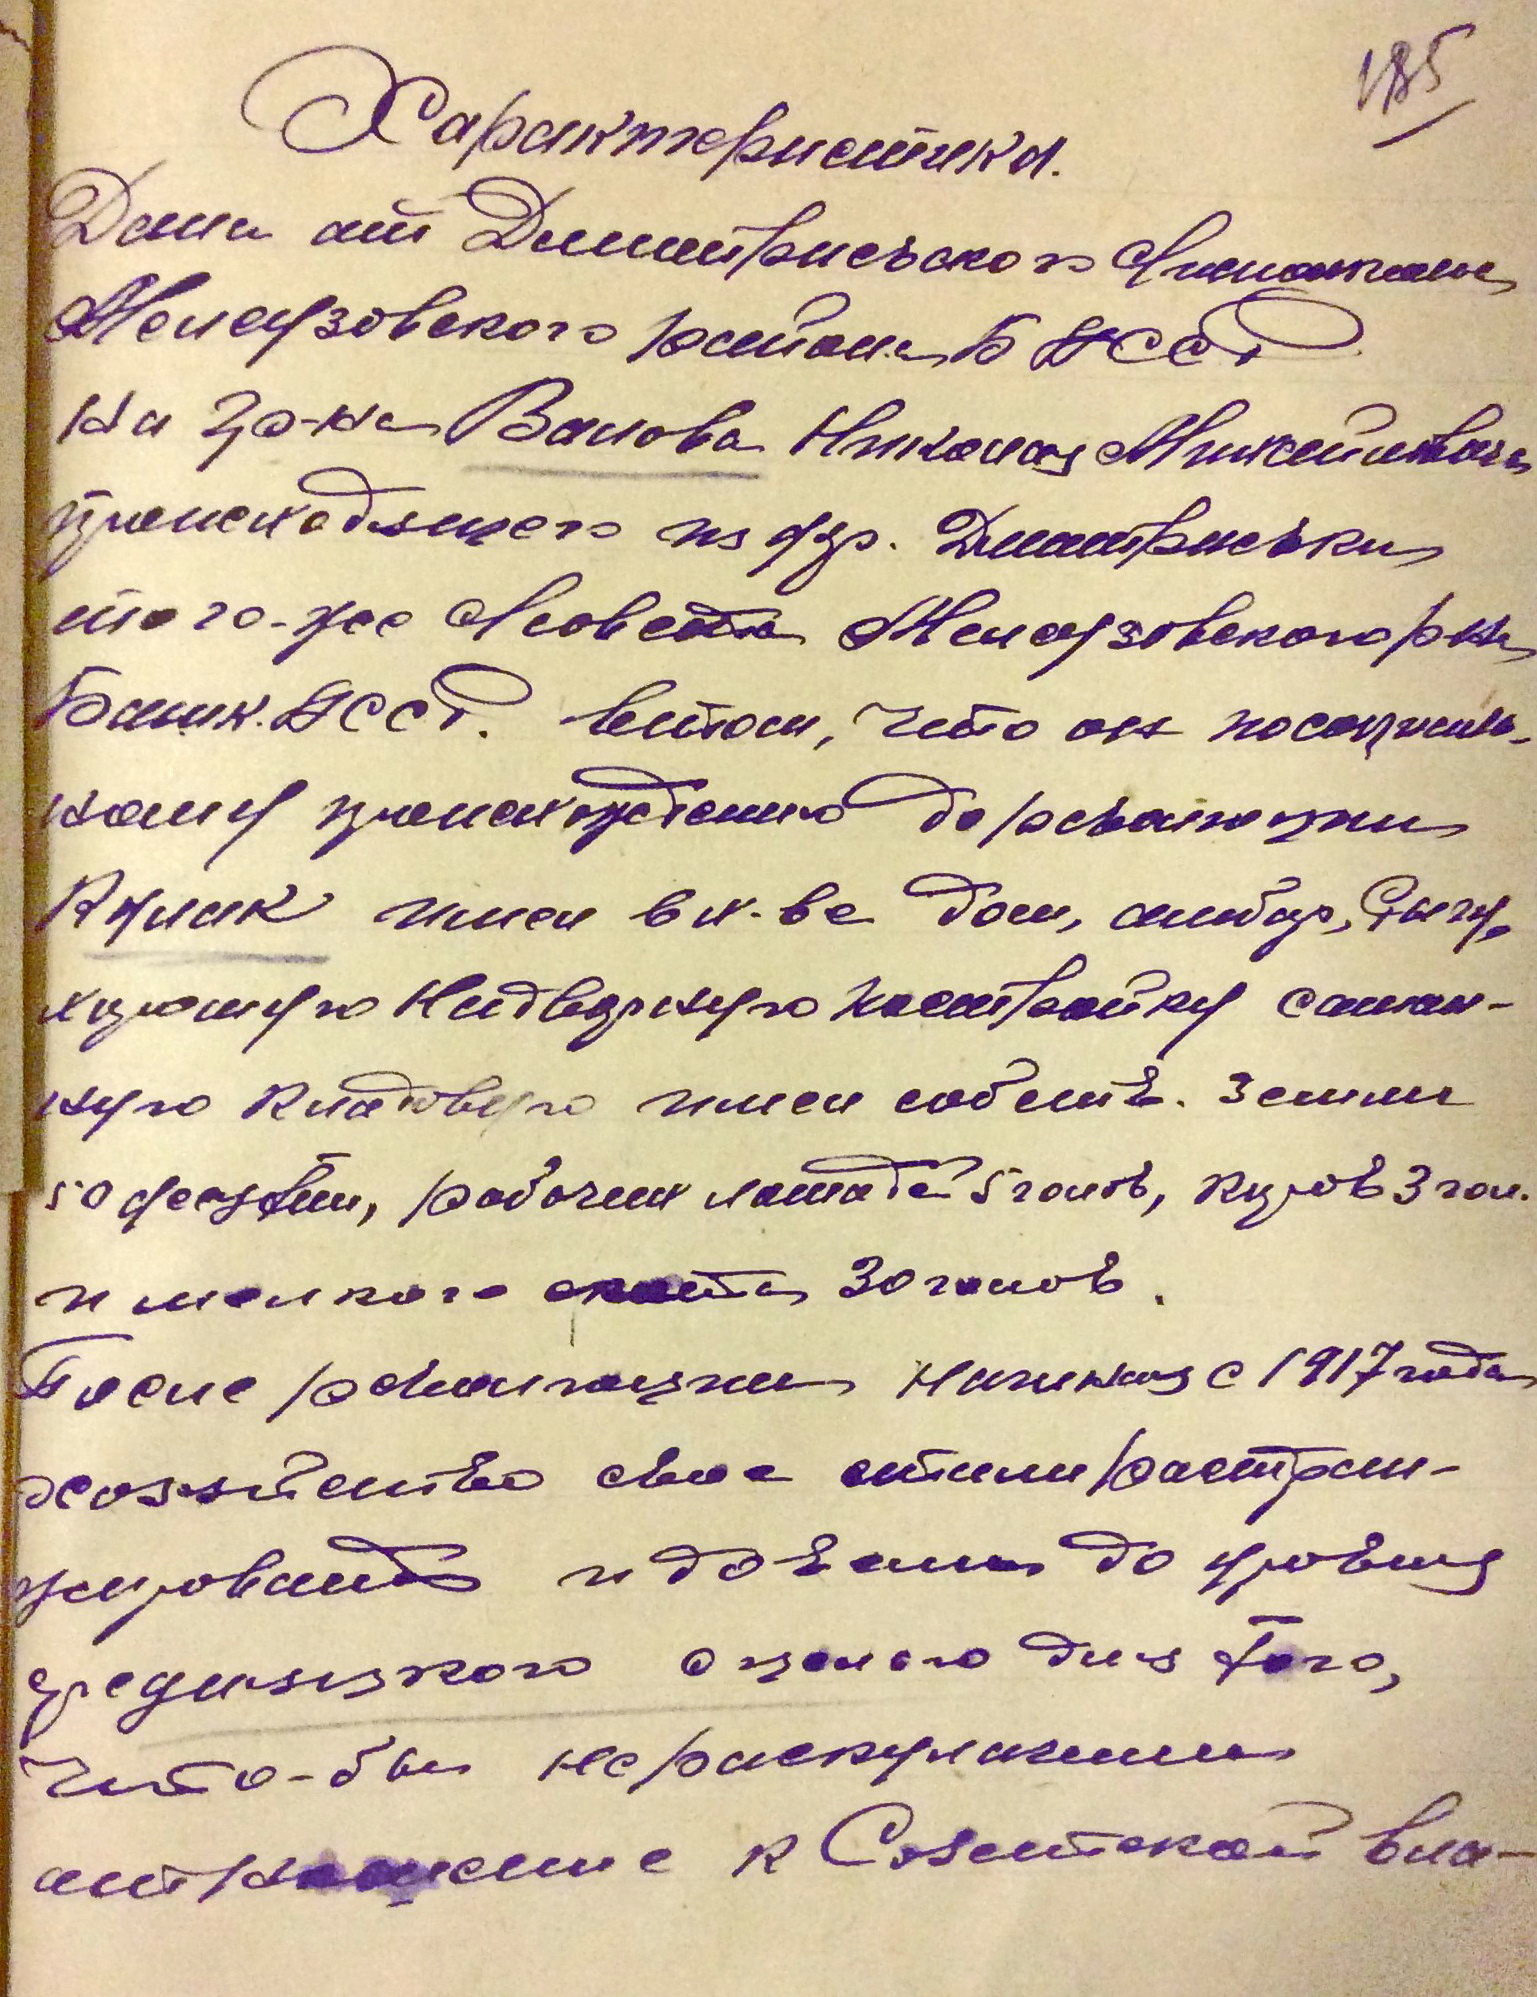 185
Характеристика.
Дана от Дмитриевского с/исполкома
Мелеузовского района Б АССР
на гр-на Валова Николая Михайловича
происходящего из дер. Дмитриевки
того-же с/совета Мелеузовского р-на
Башк. АССР. в том, что он по социаль-
ному происхождению до революции
Кулак имел в х-ве дом, амбар,
хорошую надворную постройку саман-
ную кладовую имел собств. земли
50 десятин, рабочих лошадей 5 голов, коров 3 гол.
и мелкого скота 30 голов.
После революции начиная с 1917 года
хозяйство свое стали растран-
жировать и довели до уровня
середняцкого с целью для того,
что-бы не раскулачили
отношение к Советской вла-